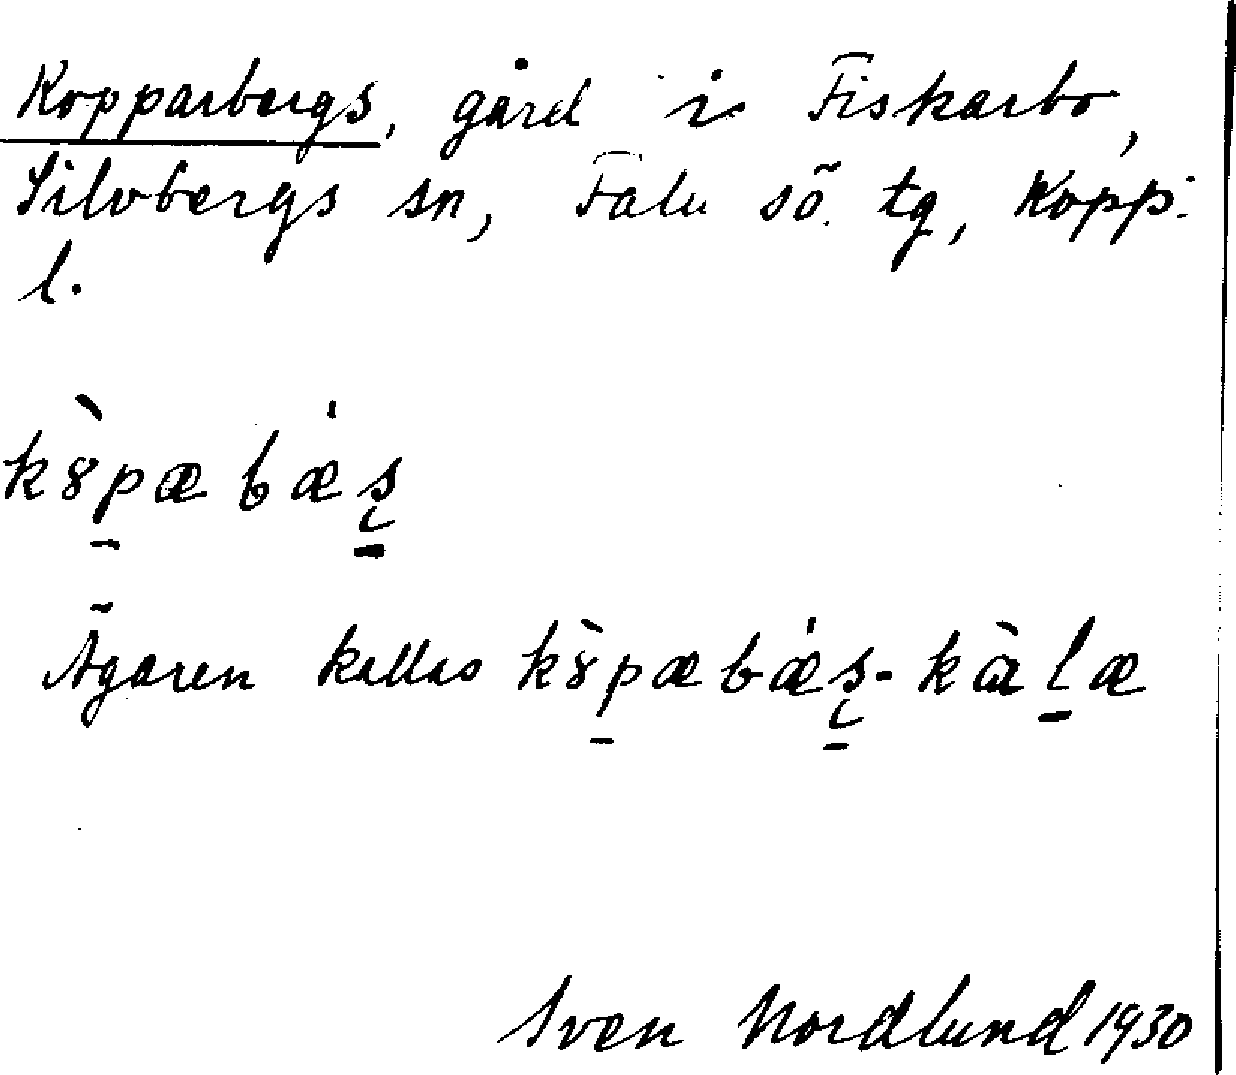 Kopparbergs, gård i Fiskarbo,
Silvbergs sn, Falu sö. tg, Kopp.
l.
k8̀p̠æbǽʂ̠
Ägaren kallas k8̀p̠æbǽʂ̠-kàl̠æ
Sven Nordlund 1930